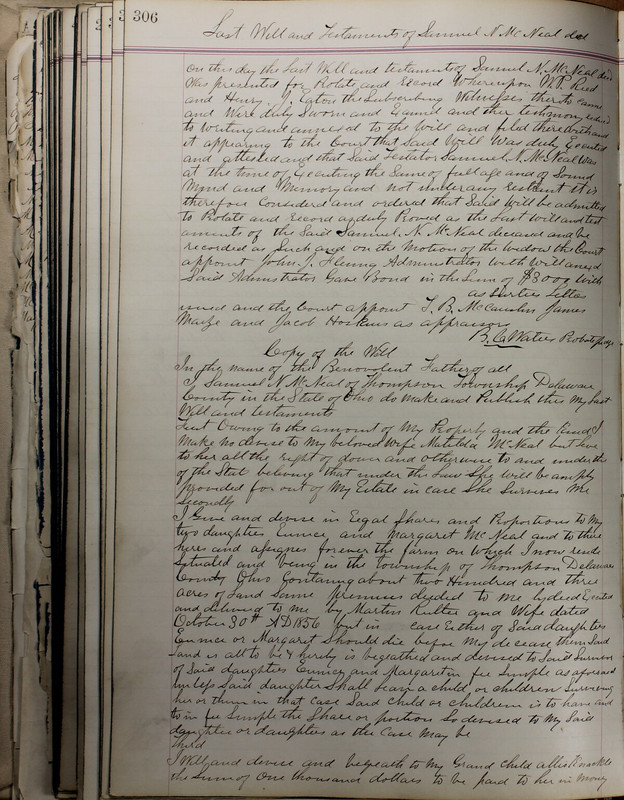 306
Last Will and Testaments of Samuel N. McNeal decd
on this day the Last Will and testaments of Samuel N. McNeal decd
Was presented for Probate and Record Whereupon W. P. Reid
and Henry Eaton the Subscribing Witnesses thereto came
and Were duly Sworn and Examed and ther testimony reduced
to writing and annexed to the Will and filed therewith and
it appearing to the Court that Said Will Was duly Executed
and attested and that Said Testator Samuel N. McNeal Was
at the time of Executing the Same of full age and of Sound
Mind and Memory and not under any restraint it is
therefore Considerd and ordered that Said Will be admitted
to Probate and Record as duly Proved as the Last Will and test
aments of the Said Samuel N. McNeal deceased and be
recorded as Such and on the Motion of the Widow the Court
appoint John J. Administrator With Will anexd
Said Administrator Gave Bond in the Sum of $3000 With
as Surties Letters
issued and the Court appoint T. B. McCauslin James
Maize and Jacob Hoskins as appraisers
B. C. Waters Probate Judge
Copy of the Will
In the name of the Benevolent Father of all
I Samuel N. McNeal of Thompson Township Delaware
County in the State of Ohio do make and Publish this My Last
Will and testaments
First Owing to the amount of My Property and the Kind I
Make no devise to My beloved Wife Matilda McNeal but leave
to her all the right of dower and otherwise to and under the
of the State believing that under the Law She will be amply
provided for out of My Estate in case She Survives Me
Secondly
I Give and devise in Eqal Shares and Proportions to My
two daughters Eunice and Margaret McNeal and to their
heirs and assignes forever the farm on Which I now reside
Situated and being in the township of Thompson Delaware
County Ohio Containing about two Hundred and three
acres of Land Same premises deeded to Me by deed Executed
and delivered to Me by Martin and Wife dated
October 30th AD 1856 but in case Either of Said daughters
Eunice or Margaret Should die before My decease then Said
Land is all to be & hereby is beqeathed and devised to Said Survivor
of Said daughters Eunice and Margaret in fee Simple as aforesaid
unless Said daughter Shall leave a child or children Surviving
her or them in that case Said child or children is to have and
to in fee Simple the Share or portion So devised to My Said
daughter or daughters as the Case May be
Third
I Will and devise and beqeath to My Grand child
the Sum of One thousand dollars to be paid to her in Money